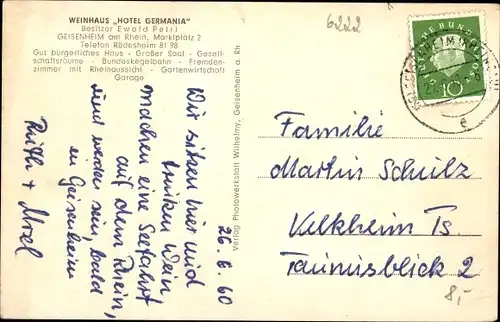 WEINHAUS „HOTEL GERMANIA"
Besitzer Ewald Petri
GEISENHEIM am Rhein, Marktplatz 2
Telefon Rüdesheim 81 98
Gut bürgerliches Haus - Großer Saal - Gesell-
schaftsräume - Bundeskegelbahn - Fremden-
zimmer mit Rheinaussicht - Gartenwirtschaft
Garage
26. 6. 60
Wir sitzen hier und
trinken Wein
machen eine Seefahrt
auf dem Rhein,
und werden sein, bald
in Geisenheim
Ruth +
Verlag Photowerkstatt Wilhelmy, Geisenheim a. Rh.
6222
10
e
Familie
Martin Schulz
Kelkheim Ts.
Taunusblick 2
8,-